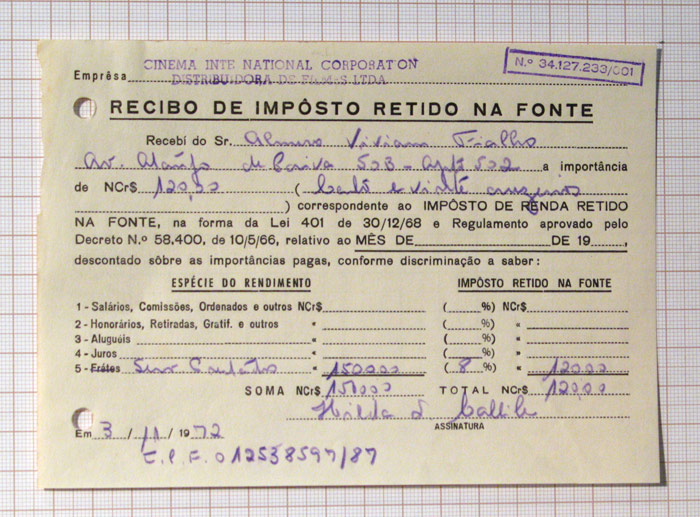 CINEMA INTE NATIONAL CORPORATION
DISTRIBUIDORA DE FILMES LTDA.
Emprêsa
N.º 34.127.233/001
RECIBO DE IMPÔSTO RETIDO NA FONTE
Recebí do Sr. Viviam Fialho
Av. de Paiva 503 - apt 502 a importância
de NCr$ 120,00 ( cento e vinte cruzeiros
) correspondente ao IMPÔSTO DE RENDA RETIDO
NA FONTE, na forma da Lei 401 de 30/12/68 e Regulamento aprovado pelo
Decreto N.º 58.400, de 10/5/66, relativo ao MÊS DE DE 19 ,
descontado sôbre as importâncias pagas, conforme discriminação a saber:
ESPÉCIE DO RENDIMENTO IMPÔSTO RETIDO NA FONTE
1 - Salários, Comissões, Ordenados e outros NCr$ ( %) NCr$
2 - Honorários, Retiradas, Gratif. e outros " ( %) "
3 - Aluguéis " ( %) "
4 - Juros " ( %) "
5 - Frétes Serv " 1500,00 ( 8 %) " 120,00
SOMA NCr$ 1500,00 TOTAL NCr$ 120,00
Hilda
ASSINATURA
Em 3 / 11 / 1972
C.P.F. 012538597/87